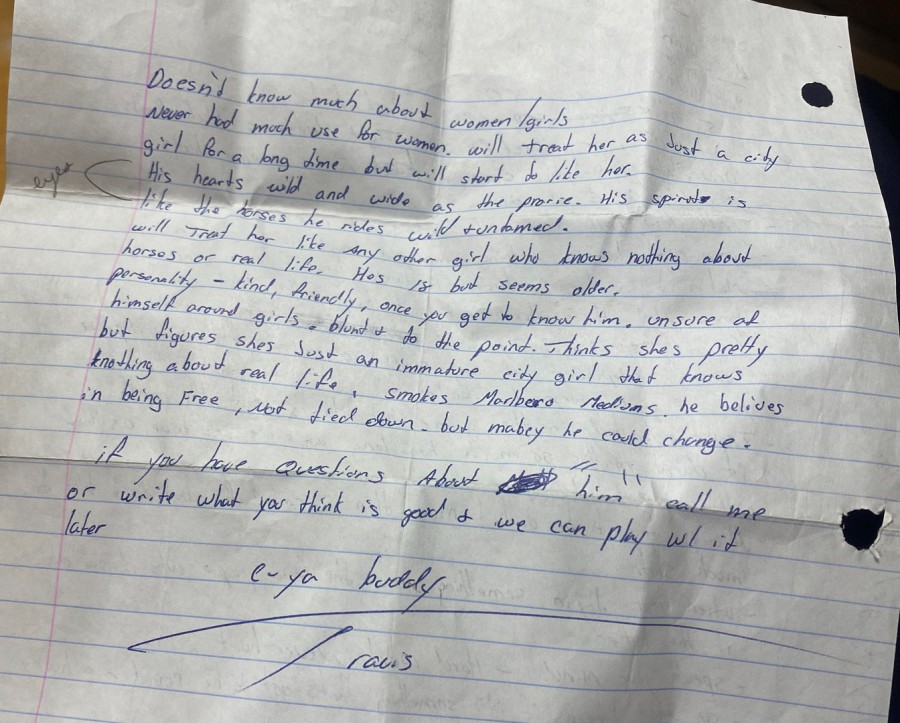 Doesn't know much about women/girls
Never had much use for women. will treat her as Just a city
girl for a long time but will start to like her.
eyes
His hearts wild and wide as the prarie. His spirots is
like the horses he rides wild & untamed.
will Treat her like Any other girl who knows nothing about
horses or real life. Hes 18 but seems older.
personality - kind, friendly, once you get to know him. unsure of
himself around girls. blunt & to the point. Thinks shes pretty
but figures shes Just an immature city girl that knows
knothing about real life, smokes Marlboro Mediums. he belives
in being Free, Not tied down. but mabey he could change.
if you have Questions About "him" call me
or write what you think is good & we can play w/ it
later
C-ya buddy
Travis